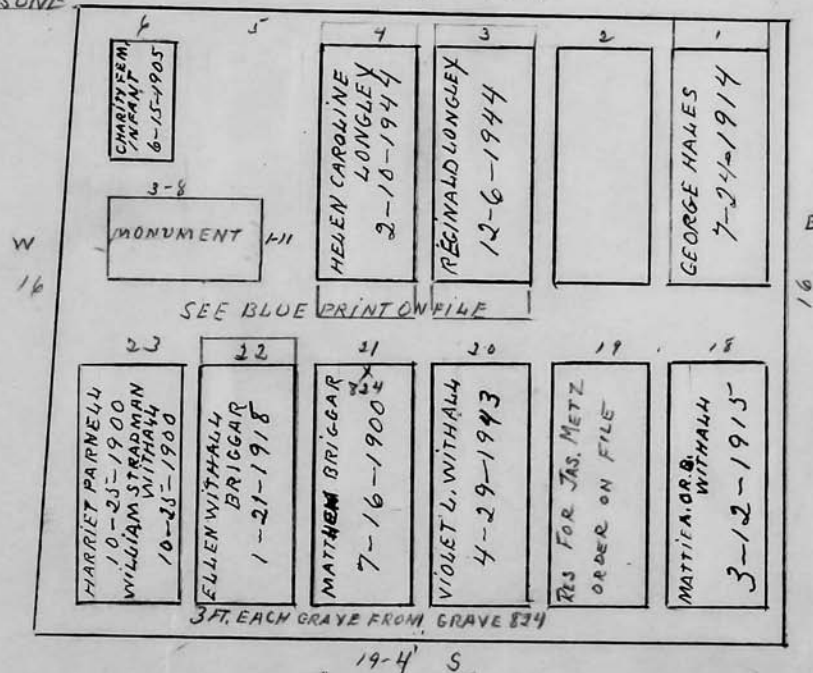 6 5 4 3 2 1
CHARITY FEM.
INFANT
6-15-1905
HELEN CAROLINE
LONGLEY
2-10-1944
REGINALD LONGLEY
12-6-1944
GEORGE HALES
7-24-1914
3-8
MONUMENT 1-11
W
16
E
16
SEE BLUE PRINT ON FILE
23 22 21 20 19 18
HARRIET PARNELL
10-25-1900
WILLIAM STRADMAN
WITHALL
10-25-1900
ELLEN WITHALL
BRIGGAR
1-21-1918
X
824
MATTHEW BRIGGAR
7-16-1900
VIOLET L. WITHALL
4-29-1943
RES FOR JAS. METZ
ORDER ON FILE
MATTIE A. OR B.
WITHALL
3-12-1915
3 FT. EACH GRAVE FROM GRAVE 824
19-4' S